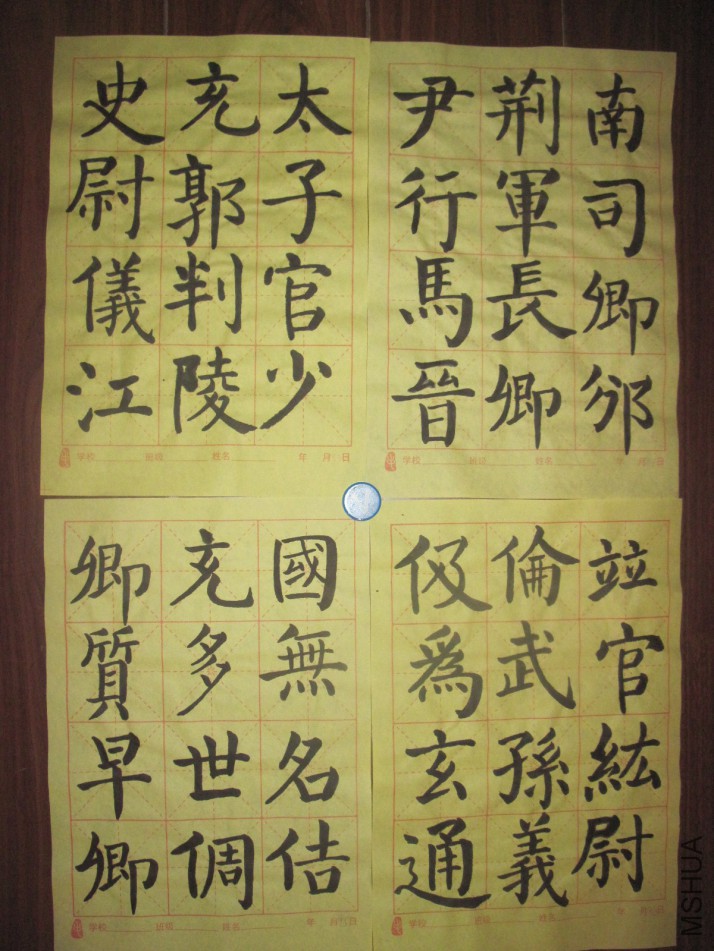 南司卿邠
荆軍長卿
尹行馬晉
学校 班级 姓名 年 月 日
太子官少
充郭判陵
史尉儀江
学校 班级 姓名 年 月 日
竝官紘尉
倫武孫義
伋爲玄通
学校 班级 姓名 年 月 日
國無名佶
充多世倜
卿質早卿
学校 班级 姓名 年 月 日
MSHUA